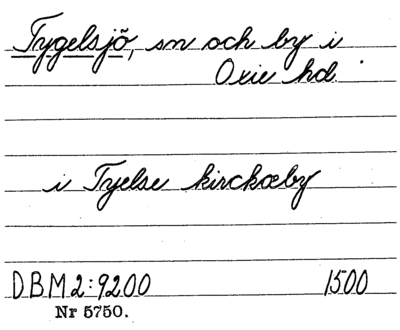 Tygelsjö, sn och by i
Oxie hd.
i Tyelse kirckæby
DBM 2:9200 1500
Nr 5750.